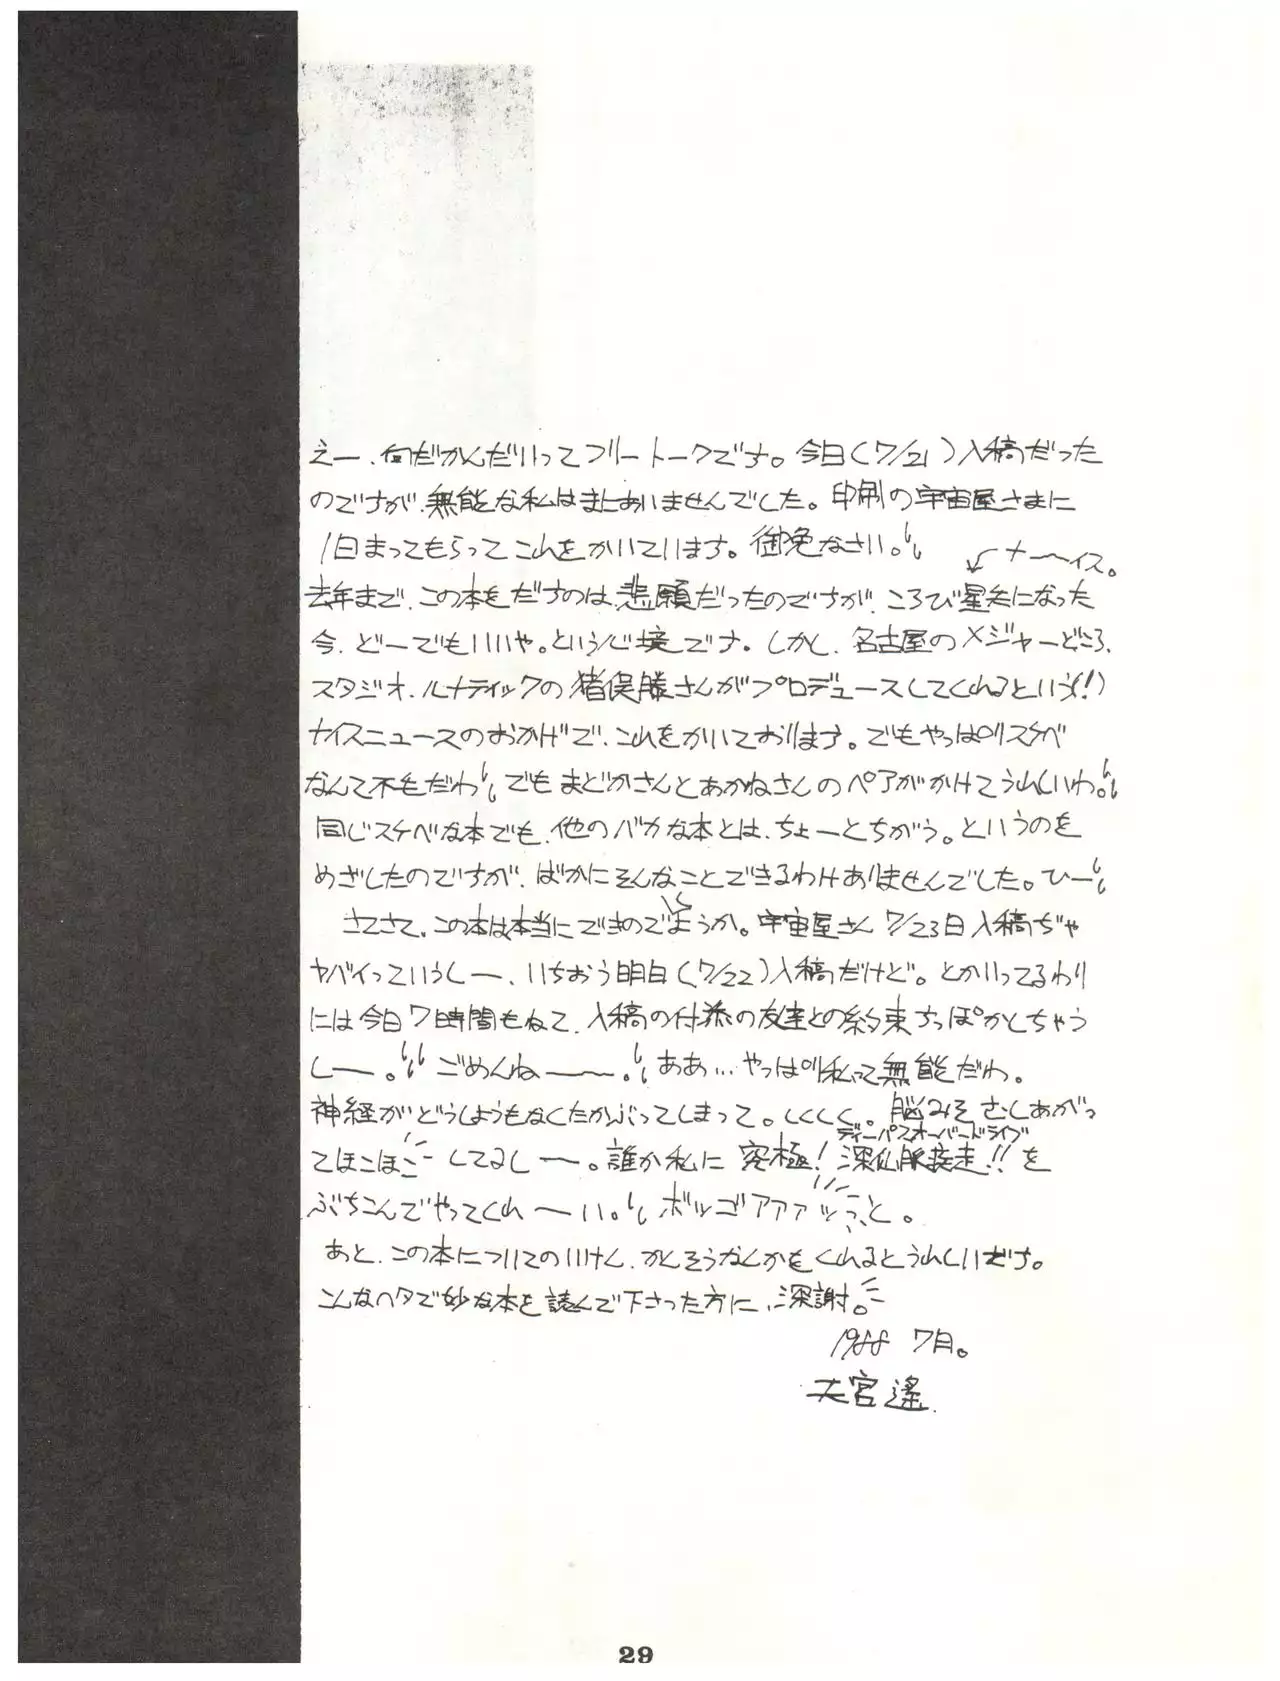 えー、何だかんだいってフリートークです。今日(7/21)入稿だった
のですが、無能な私はまにあいませんでした。印刷の宇宙屋さまに
1日まってもらってこれをかいています。御免なさい。
ナ〜〜イス。
去年まで、この本をだすのは、悲願だったのですが、ころび星矢になった
今、どーでもいいや。という心境です。しかし、名古屋のメジャーどころ、
スタジオ・ルナティックの猪俣勝さんがプロデュースしてくれるという(!)
ナイスニュースのおかげで、これをかいております。でもやっぱりスケベ
なんて不毛だわ でもまどかさんとあかねさんのペアがかけてうれしいわ。
同じスケベな本でも、他のバカな本とは、ちょーとちがう。というのを
めざしたのですが、ばかにそんなことできるわけありませんでした。ひー
さてさて、この本は本当にできのでしょうか。宇宙屋さん7/23日入稿ぢゃ
ヤバイっていうしー、いちおう明日(7/22)入稿だけど。とかいってるわり
には今日7時間もねて、入稿の付添の友達との約束すっぽかしちゃう
しー。ごめんねー〜。ああ…やっぱり私って無能だわ。
神経がどうしようもなくたかぶってしまって。しくしく。脳みそむしあがっ
てほこほこしてるしー。誰か私に究極!
ディーパスオーバードライブ
深仙脈疾走!!を
ぶちこんでやってくれ〜い。ボッゴアァァッっと。
あと、この本についてのいけん、かんそうなんかをくれるとうれしいだす。
こんなヘタで妙な本を読んで下さった方に、深謝。
1988 7月。
大宮遙
29